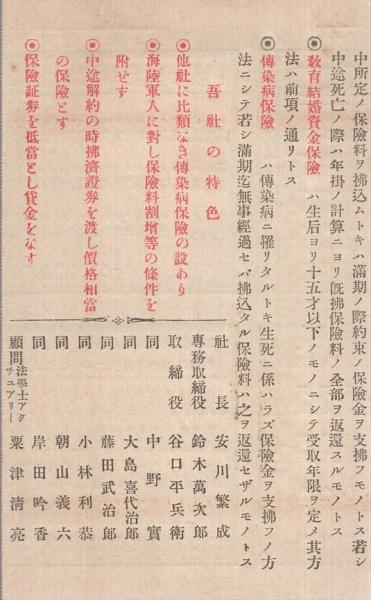 中所定ノ保險料ヲ拂込ムトキハ滿期ノ際約束ノ保險金ヲ支拂フモノトス若シ
中途死亡ノ際ハ年掛ノ計算ニヨリ旣拂保險料ノ全部ヲ返還スルモノトス
◉教育結婚資金保險 ハ生后ヨリ十五才以下ノモノニシテ受取年限ヲ定メ其方
法ハ前項ノ通リトス
◉傳染病保險 ハ傳染病ニ罹リタルトキ生死ニ係ハラズ保險金ヲ支拂フノ方
法ニシテ若シ滿期迄無事經過セバ拂込タル保險料ハ之ヲ返還セザルモノトス
吾社の特色
◉他社に比類なき傳染病保險の設あり
◉海陸軍人に對し保險料割增等の條件を
附せず
◉中途解約の時拂濟證券を渡し價格相當
の保險とす
◉保險証券を低當とし貸金をなす
社長 安川繁成
專務取締役 鈴木萬次郎
取締役 谷口平兵衛
同 中野實
同 大島喜代治郎
同 藤田武治郎
同 小林利恭
同 朝山義六
同 岸田吟香
顧問法學士アクチュアリー 粟津淸亮